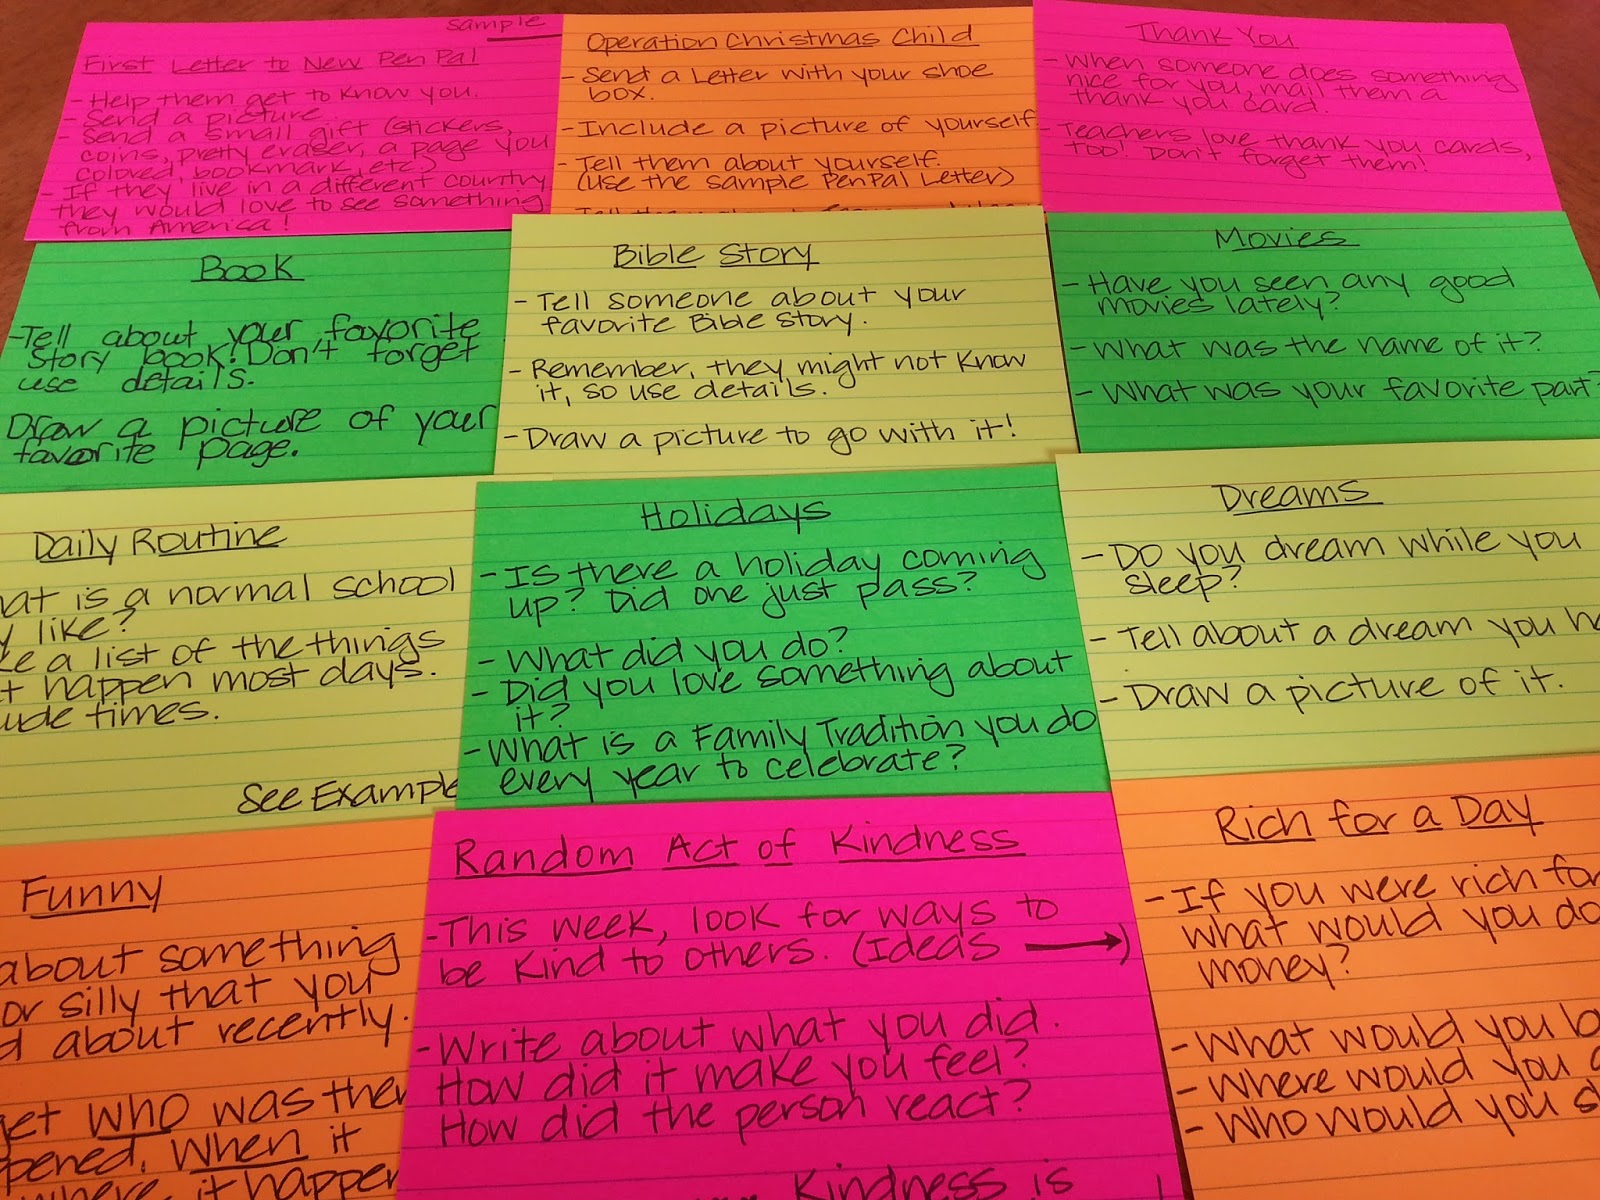 Sample
First Letter to New Pen Pal
- Help them get to know you.
- Send a picture
- Send a small gift (stickers,
coins, pretty eraser, a page you
colored, bookmark, etc)
- If they live in a different country
they would love to see something
from America!
Operation Christmas Child
- Send a Letter with your shoe
box.
- Include a picture of yourself
- Tell them about yourself.
(use the sample PenPal Letter)
Thank You
- When someone does something
nice for you, mail them a
thank you card.
- Teachers love thank you cards,
too! Don't forget them!
Book
- Tell about your favorite
Story book! Don't forget
use details.
Draw a picture of your
favorite page.
Bible Story
- Tell someone about your
favorite Bible Story.
- Remember, they might not know
it, so use details.
- Draw a picture to go with it!
Movies
- Have you seen any good
movies lately?
- What was the name of it?
- What was your favorite part?
Daily Routine
is a normal school
like?
a list of the things
happen most days.
times.
See Example
Holidays
- Is there a holiday coming
up? Did one just pass?
- What did you do?
- Did you love something about
it?
- What is a Family Tradition you do
every year to celebrate?
Dreams
- Do you dream while you
sleep?
- Tell about a dream you
- Draw a picture of it.
Funny
about something
or silly that you
about recently.
who was
When it
where, it
Random Act of Kindness
- This week, look for ways to
be kind to others. (Ideas →)
- Write about what you did.
How did it make you feel?
How did the person react?
Kindness is
Rich for a Day
- If you were rich for
what would you do
money?
- What would you
- Where would you
- Who would you